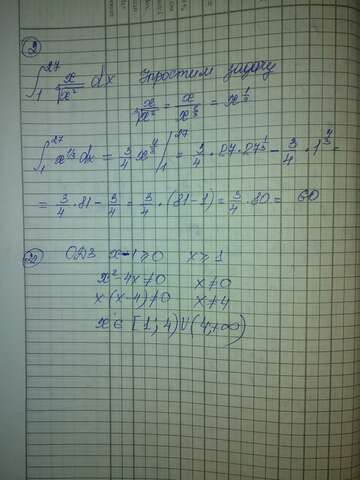 ②
∫₁²⁷ x/∛x² dx Упростим задачу
x/∛x² = x/x^(2/3) = x^(1/3)
∫₁²⁷ x^(1/3) dx = 3/4 x^(4/3) |₁²⁷ = 3/4 · 27 · 27^(1/3) − 3/4 · 1^(4/3) =
= 3/4 · 81 − 3/4 = 3/4 · (81 − 1) = 3/4 · 80 = 60
ОДЗ x − 1 ≥ 0 x ≥ 1
x² − 4x ≠ 0 x ≠ 0
x(x − 4) ≠ 0 x ≠ 4
x ∈ [1; 4) ∪ (4, +∞)